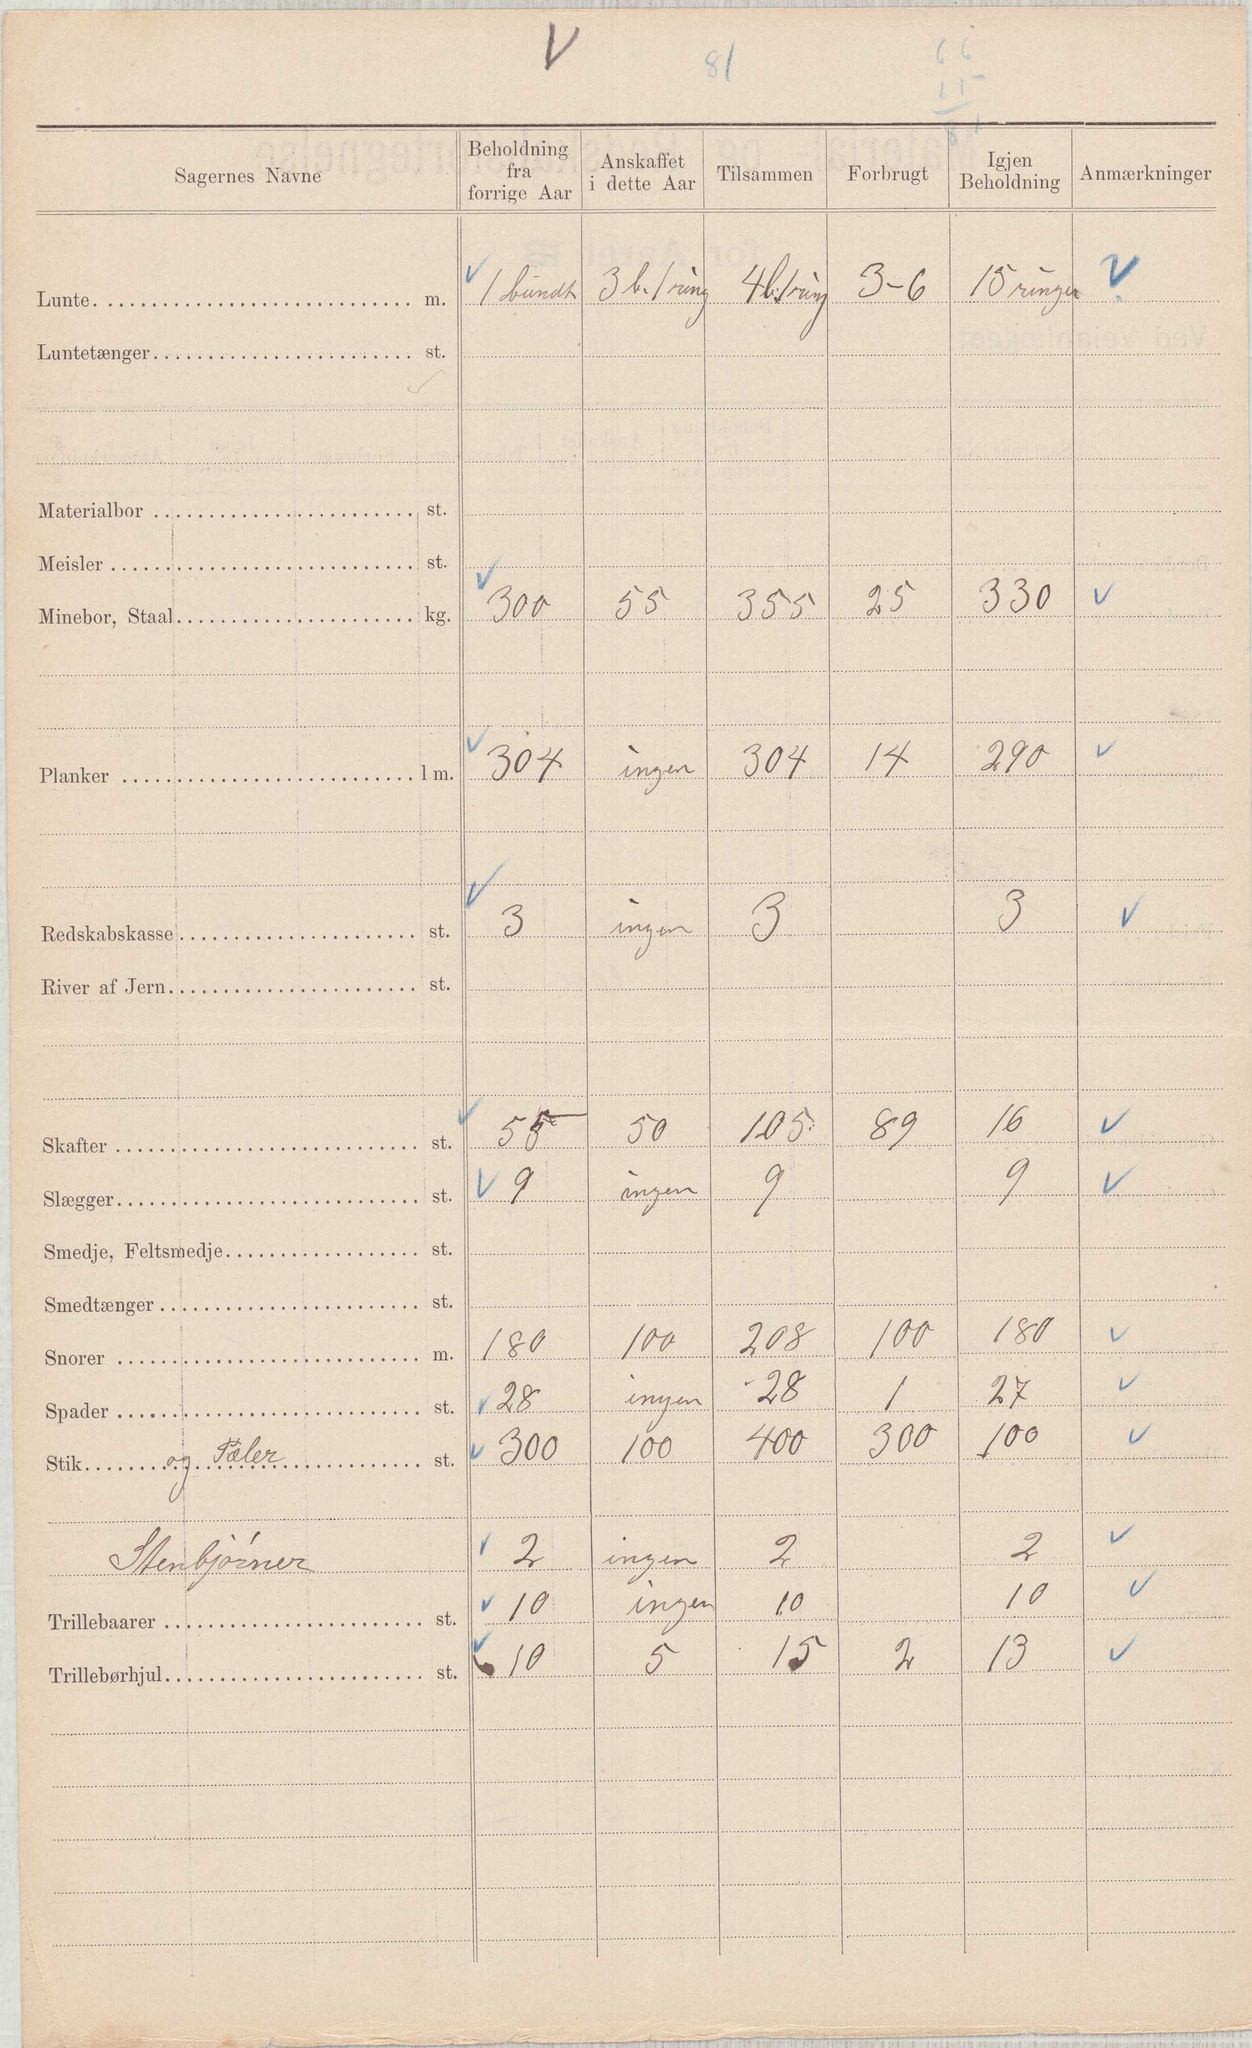 V 81 66
15
81
Sagernes Navne | Beholdning fra forrige Aar | Anskaffet i dette Aar | Tilsammen | Forbrugt | Igjen Beholdning | Anmærkninger
Lunte m. | 1 bundt | 3 b. 1 ring | 4 b. 1 ring | 3-6 | 15 ringer | ✓
Luntetænger st.
Materialbor st.
Meisler st.
Minebor, Staal kg. | 300 | 55 | 355 | 25 | 330 | ✓
Planker l m. | 304 | ingen | 304 | 14 | 290 | ✓
Redskabskasse st. | 3 | ingen | 3 | | 3 | ✓
River af Jern st.
Skafter st. | 55 | 50 | 105 | 89 | 16 | ✓
Slægger st. | 9 | ingen | 9 | | 9 | ✓
Smedje, Feltsmedje st.
Smedtænger st.
Snorer m. | 180 | 100 | 208 | 100 | 180 | ✓
Spader st. | 28 | ingen | 28 | 1 | 27 | ✓
Stik og Pæler st. | 300 | 100 | 400 | 300 | 100 | ✓
Stenbjørner | 2 | ingen | 2 | | 2 | ✓
Trillebaarer st. | 10 | ingen | 10 | | 10 | ✓
Trillebørhjul st. | 10 | 5 | 15 | 2 | 13 | ✓